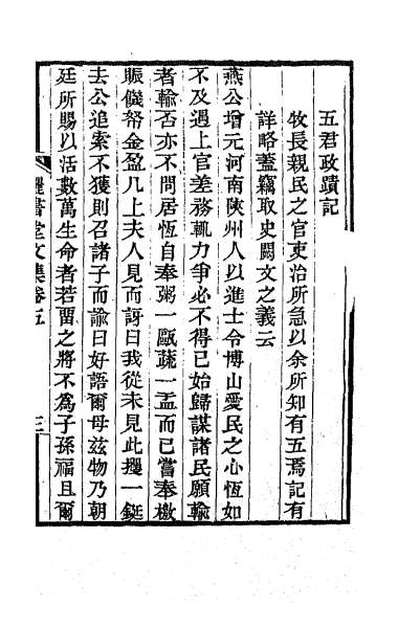 五君政蹟記
牧長親民之官吏治所急以余所知有五焉記有
詳略蓋竊取史闕文之義云
燕公增元河南陝州人以進士令博山愛民之心恆如
不及遇上官差務輒力爭必不得已始歸謀諸民願輸
者輸否亦不問居恆自奉粥一甌蔬一盂而已嘗奉檄
賑饑帑金盈几上夫人見而訝曰我從未見此攫一鋌
去公追索不獲則召諸子而諭曰好語爾母茲物乃朝
廷所賜以活數萬生命者若畱之將不為子孫福且爾
書堂文集卷五
三